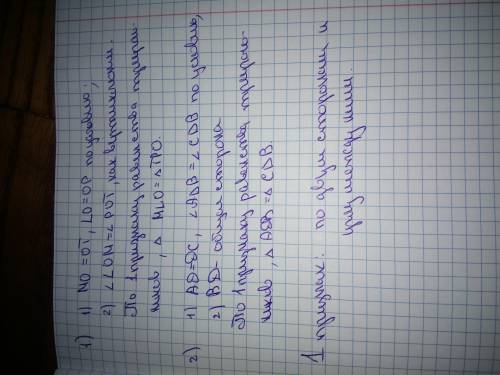 1) 1) NO=OT, LO=OP по условию;
2) ∠LON=∠POT, как вертикальные.
По 1 признаку равенства треуголь-
ников, △ NLO=△TPO.
2) 1) AD=DC, ∠ADB=∠CDB по условию,
2) BD- общая сторона
По 1 признаку равенства треуголь-
ников, △ ADB=△CDB.
1 признак: по двум сторонам и
углу между ними.